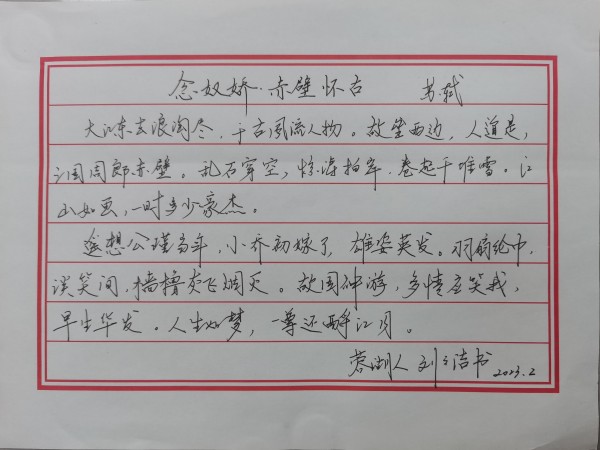 念奴娇·赤壁怀古 苏轼
大江东去浪淘尽，千古风流人物。故垒西边，人道是，
三国周郎赤壁。乱石穿空，惊涛拍岸，卷起千堆雪。江
山如画，一时多少豪杰。
遥想公瑾当年，小乔初嫁了，雄姿英发。羽扇纶巾，
谈笑间，樯橹灰飞烟灭。故国神游，多情应笑我，
早生华发。人生如梦，一尊还酹江月。
蓉湖人 刘之洁书 2023.2